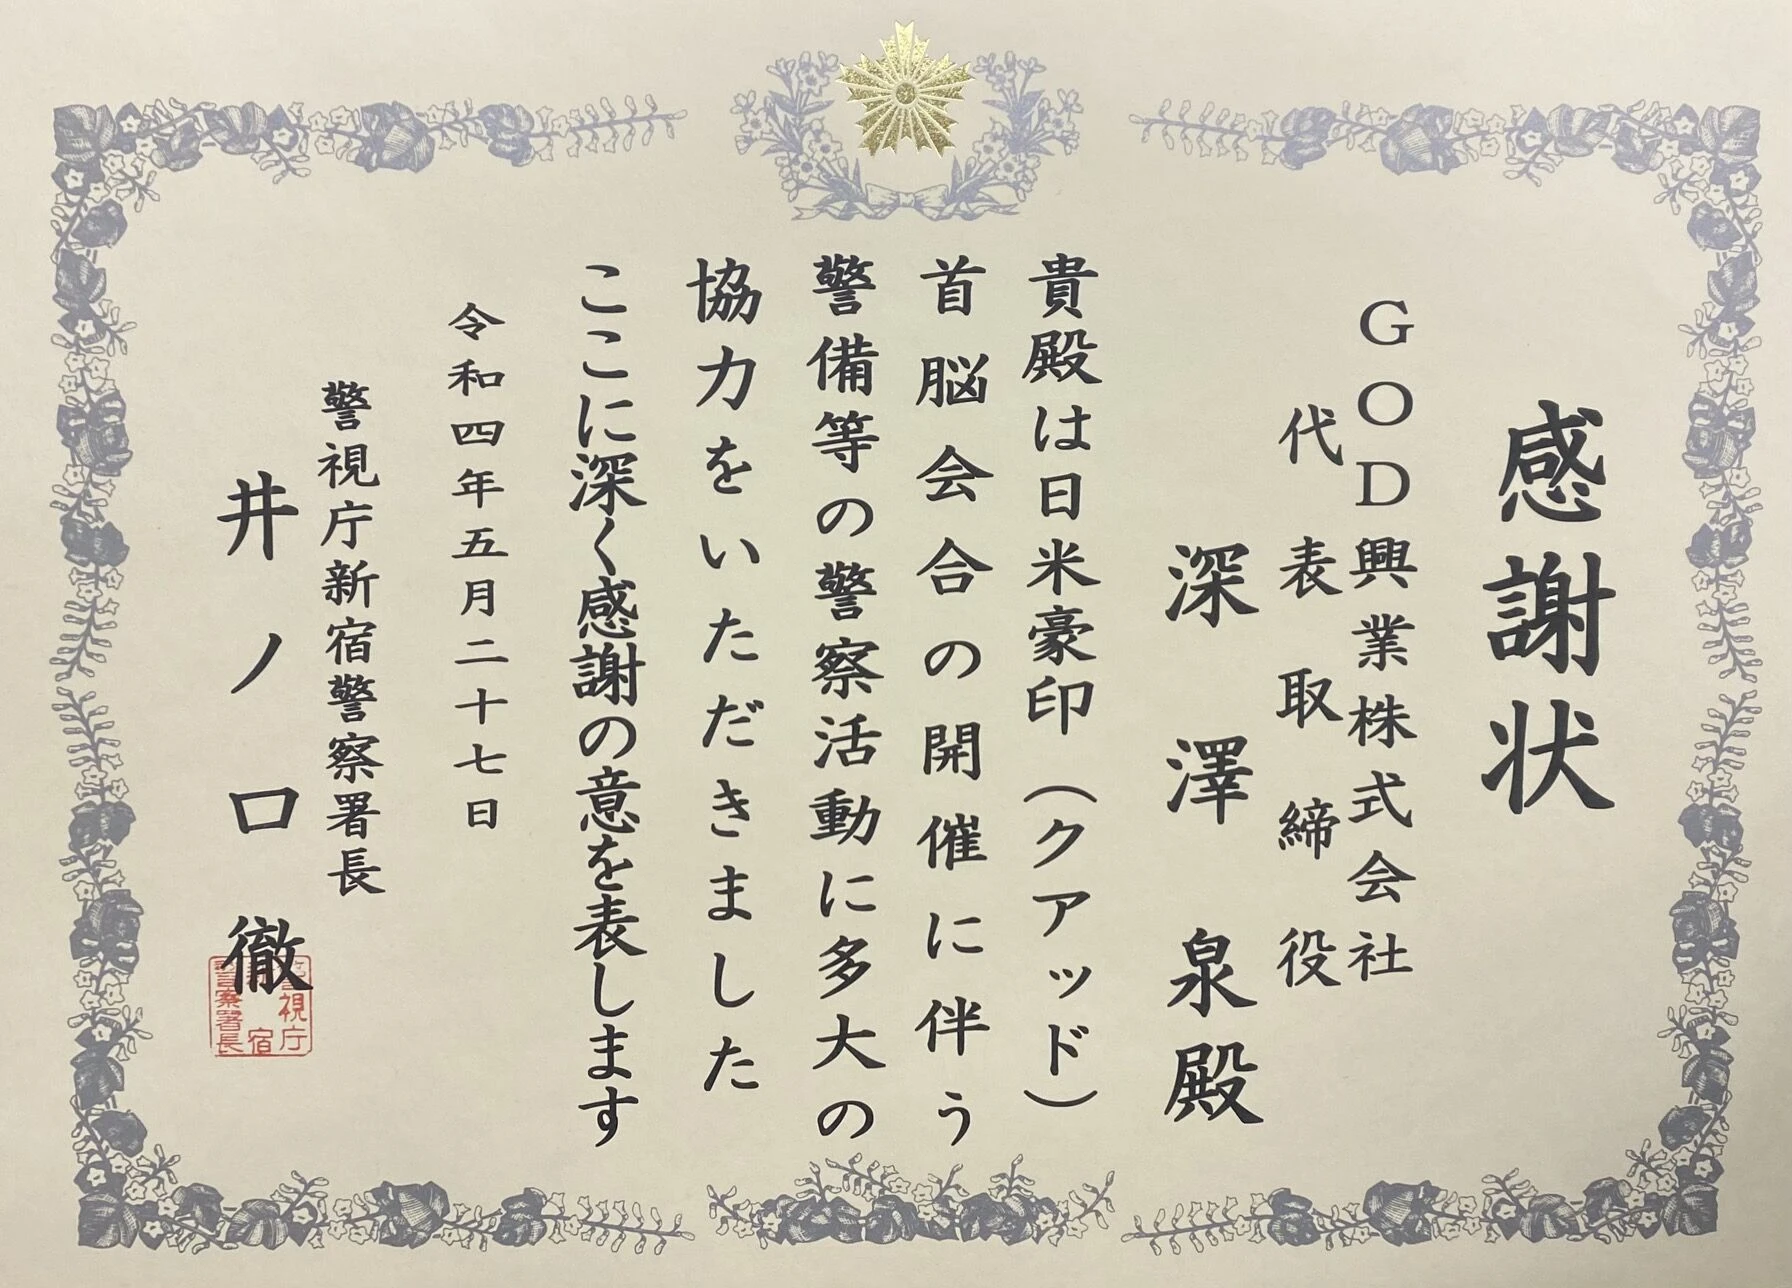 感謝状
GOD興業株式会社
代表取締役
深澤泉殿
貴殿は日米豪印（クアッド）
首脳会合の開催に伴う
警備等の警察活動に多大の
協力をいただきました
ここに深く感謝の意を表します
令和四年五月二十七日
警視庁新宿警察署長
井ノ口徹
警視庁
宿
警察署長